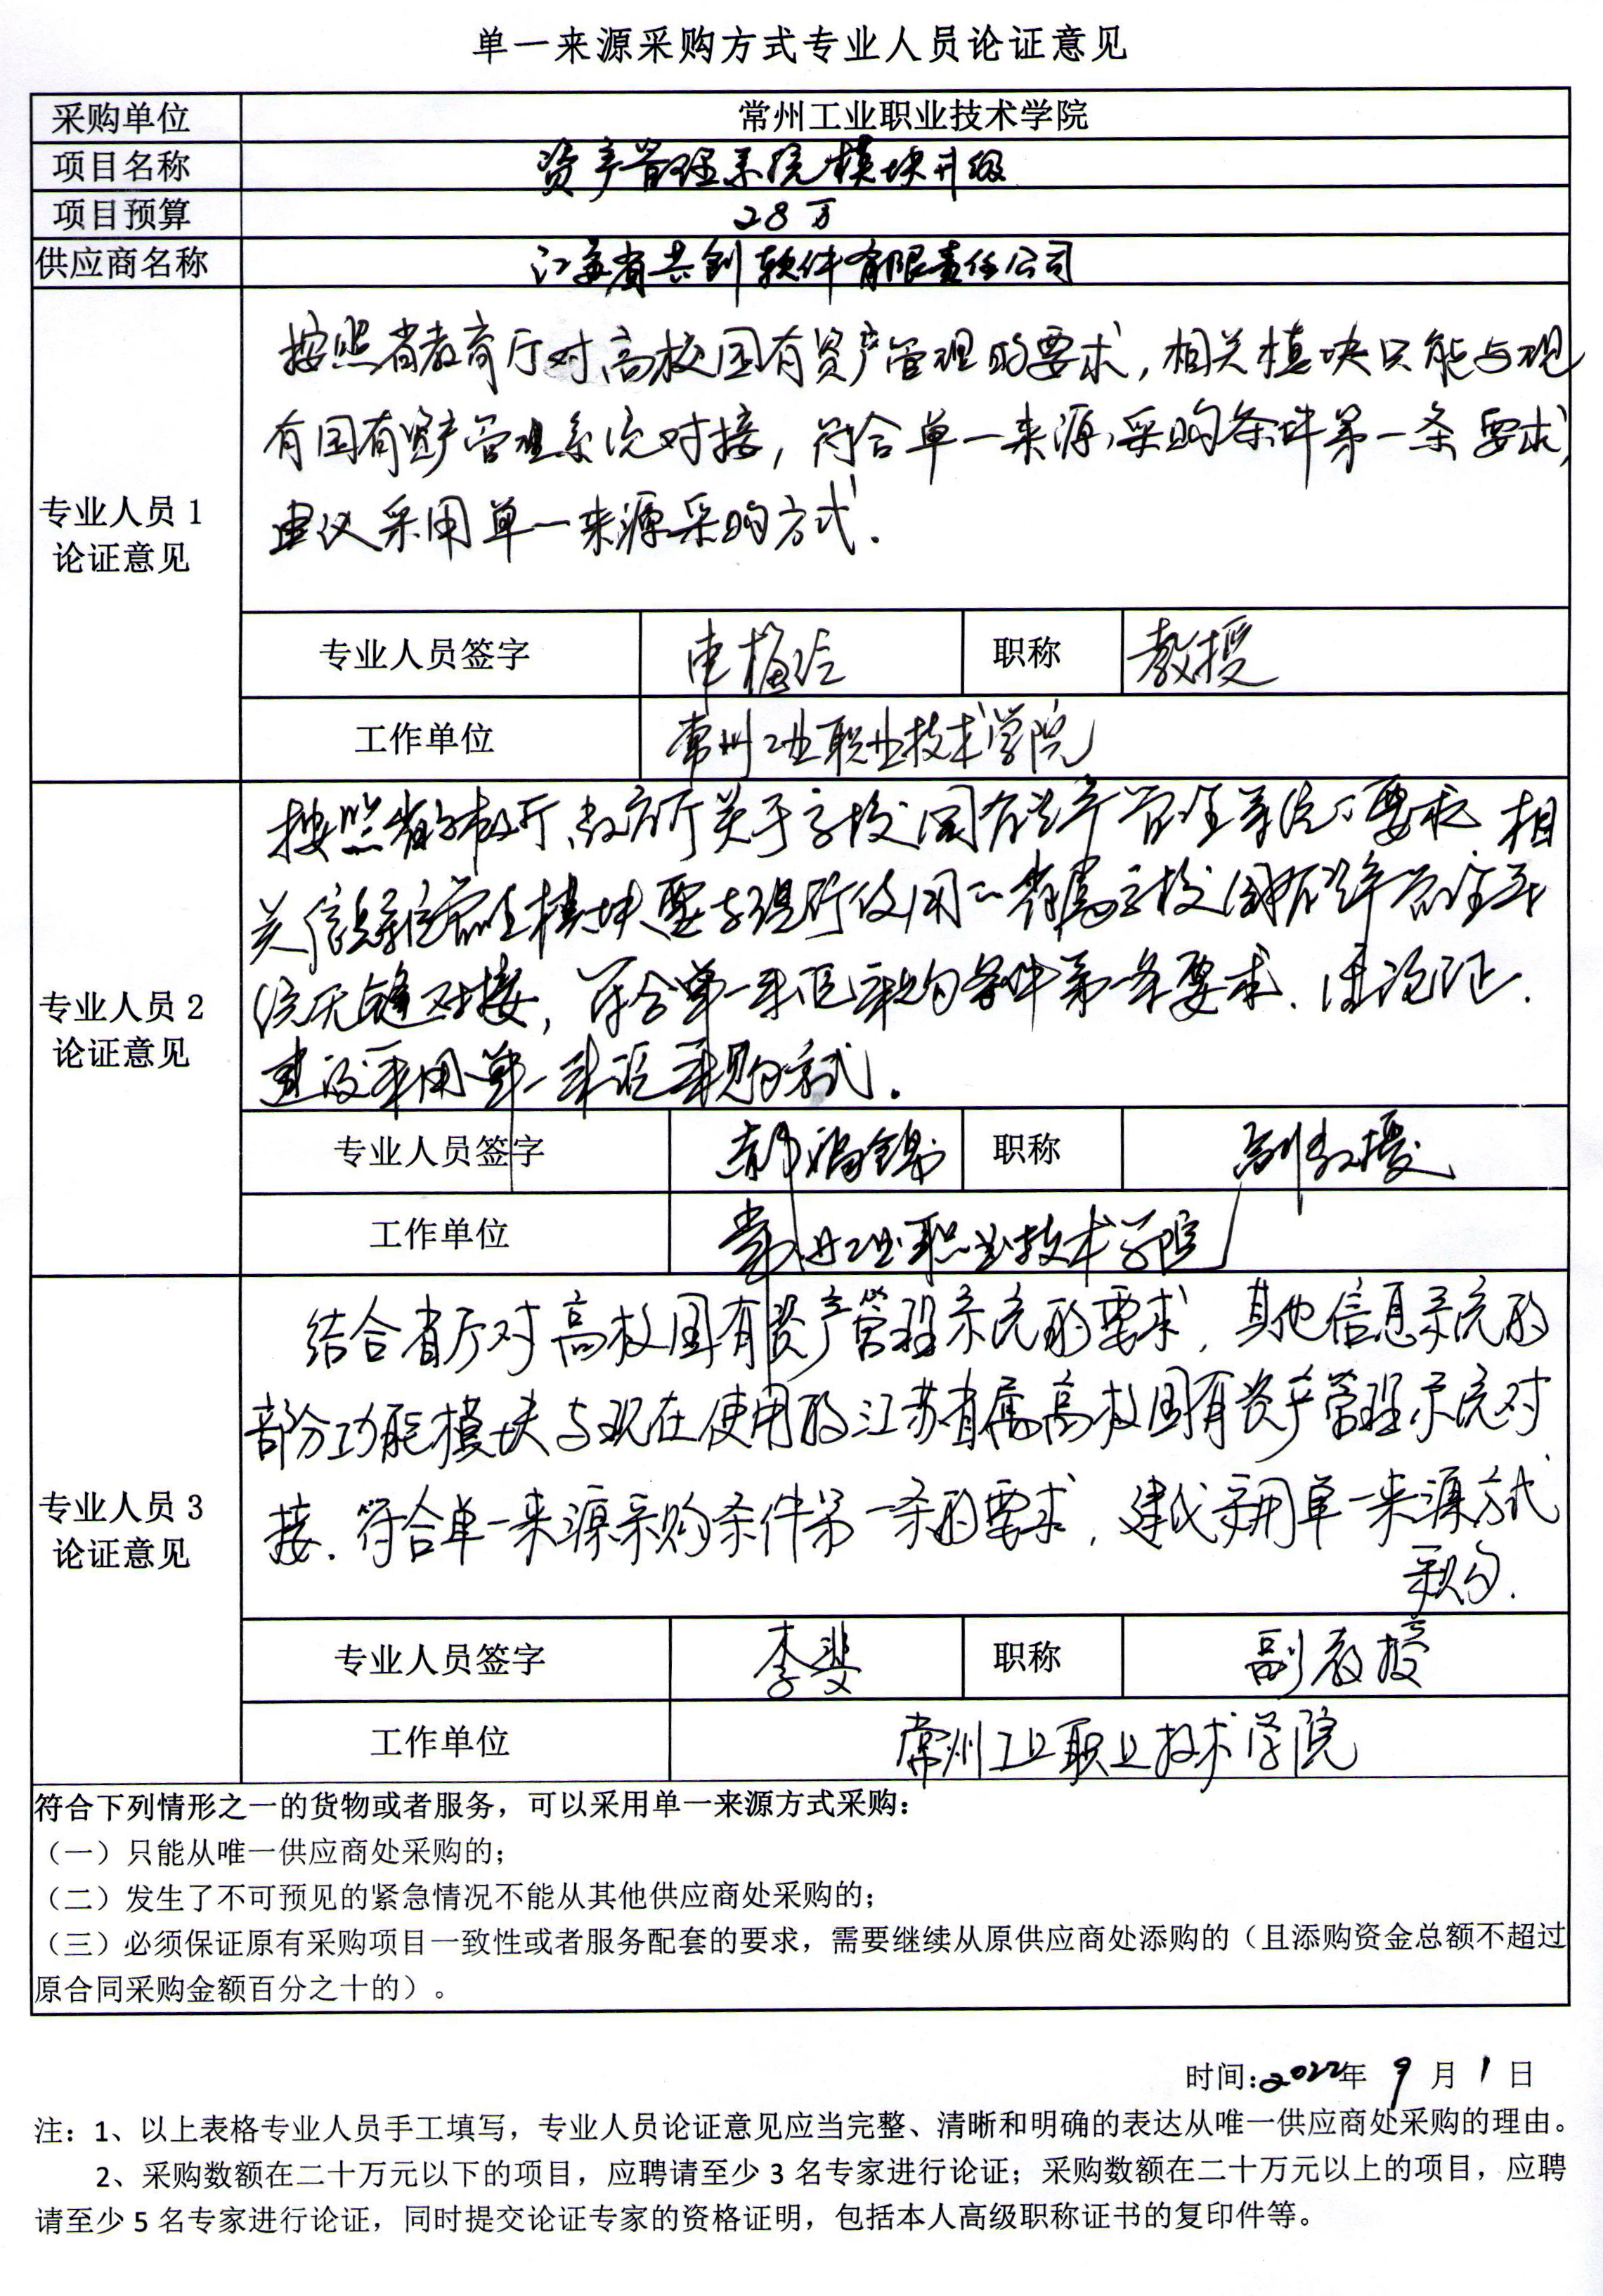 单一来源采购方式专业人员论证意见
采购单位 常州工业职业技术学院
项目名称 资产管理系统模块升级
项目预算 28万
供应商名称 江苏省共创软件有限责任公司
按照省教育厅对高校国有资产管理的要求，相关模块只能与现
有国有资产管理系统对接，符合单一来源采购条件第一条要求，
建议采用单一来源采购方式.
专业人员1
论证意见
专业人员签字 职称 教授
工作单位 常州工业职业技术学院
按照省财政厅、教育厅关于高校国有资产管理系统的要求 相
关信息 管理模块要与现行使用的省属高校国有资产管理系
统无缝对接，符合单一来源采购条件第一条要求.
建议采用单一来源采购方式.
专业人员2
论证意见
专业人员签字 职称 副教授
工作单位 常州工业职业技术学院
结合省厅对高校国有资产管理系统的要求，其他信息系统的
部分功能模块与现在使用的江苏省属高校国有资产管理系统对
接.符合单一来源采购条件第一条的要求，建议采用单一来源方式
采购.
专业人员3
论证意见
专业人员签字 李斐 职称 副教授
工作单位 常州工业职业技术学院
符合下列情形之一的货物或者服务，可以采用单一来源方式采购：
（一）只能从唯一供应商处采购的；
（二）发生了不可预见的紧急情况不能从其他供应商处采购的；
（三）必须保证原有采购项目一致性或者服务配套的要求，需要继续从原供应商处添购的（且添购资金总额不超过
原合同采购金额百分之十的）。
时间：2022年 9 月 1 日
注：1、以上表格专业人员手工填写，专业人员论证意见应当完整、清晰和明确的表达从唯一供应商处采购的理由。
2、采购数额在二十万元以下的项目，应聘请至少 3 名专家进行论证；采购数额在二十万元以上的项目，应聘
请至少 5 名专家进行论证，同时提交论证专家的资格证明，包括本人高级职称证书的复印件等。